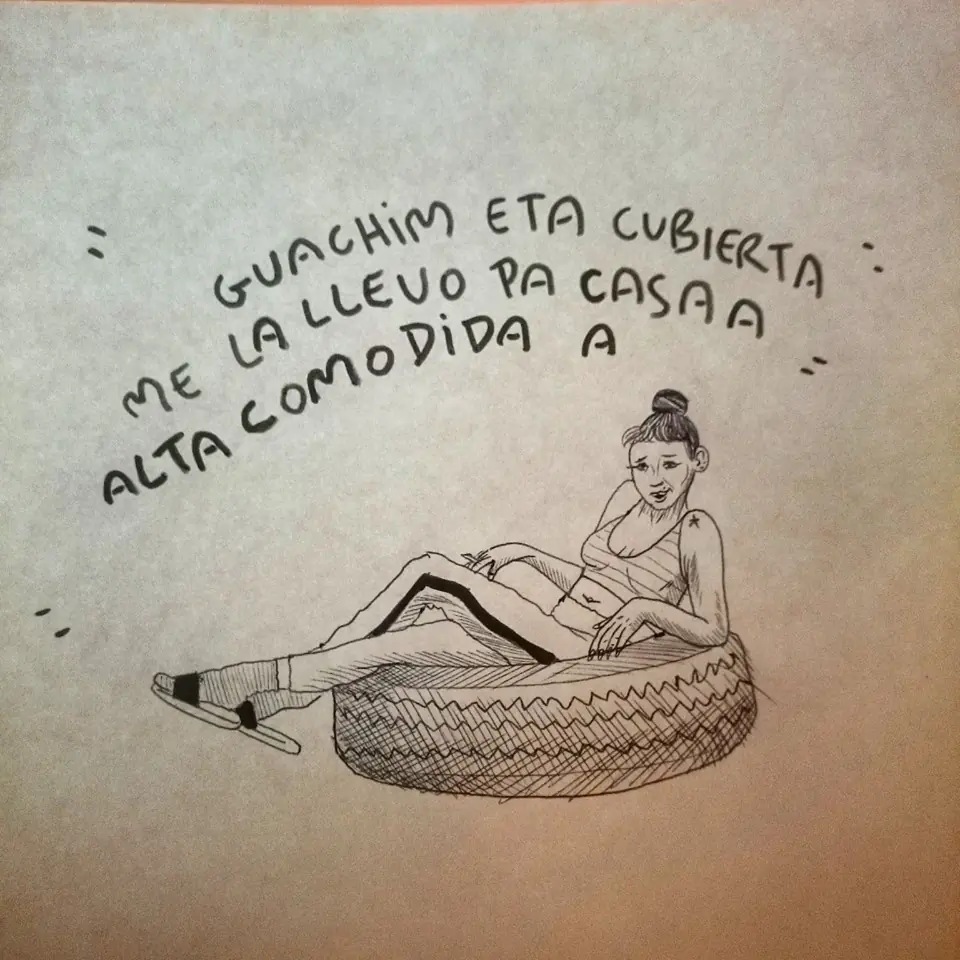 GUACHiM ETA CUBIERTA
ME LA LLEVO PA CASA A
ALTA COMODiDA A